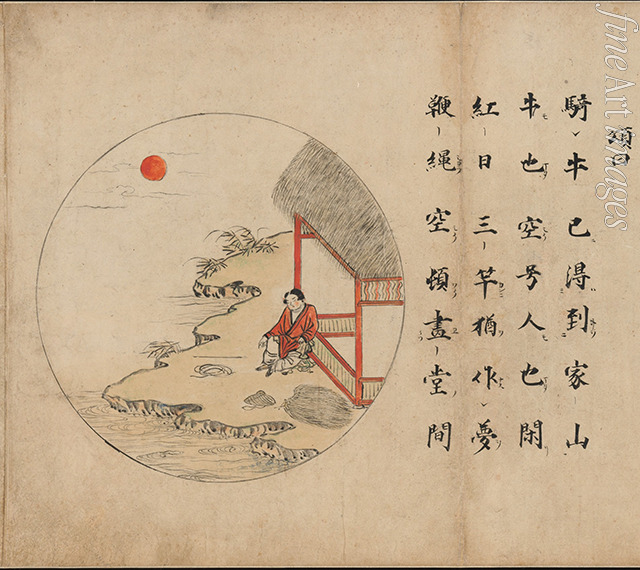 頌曰
騎牛已得到家山
牛也空兮人也閑
紅日三竿猶作夢
鞭繩空頓畫堂間
fine Art Images